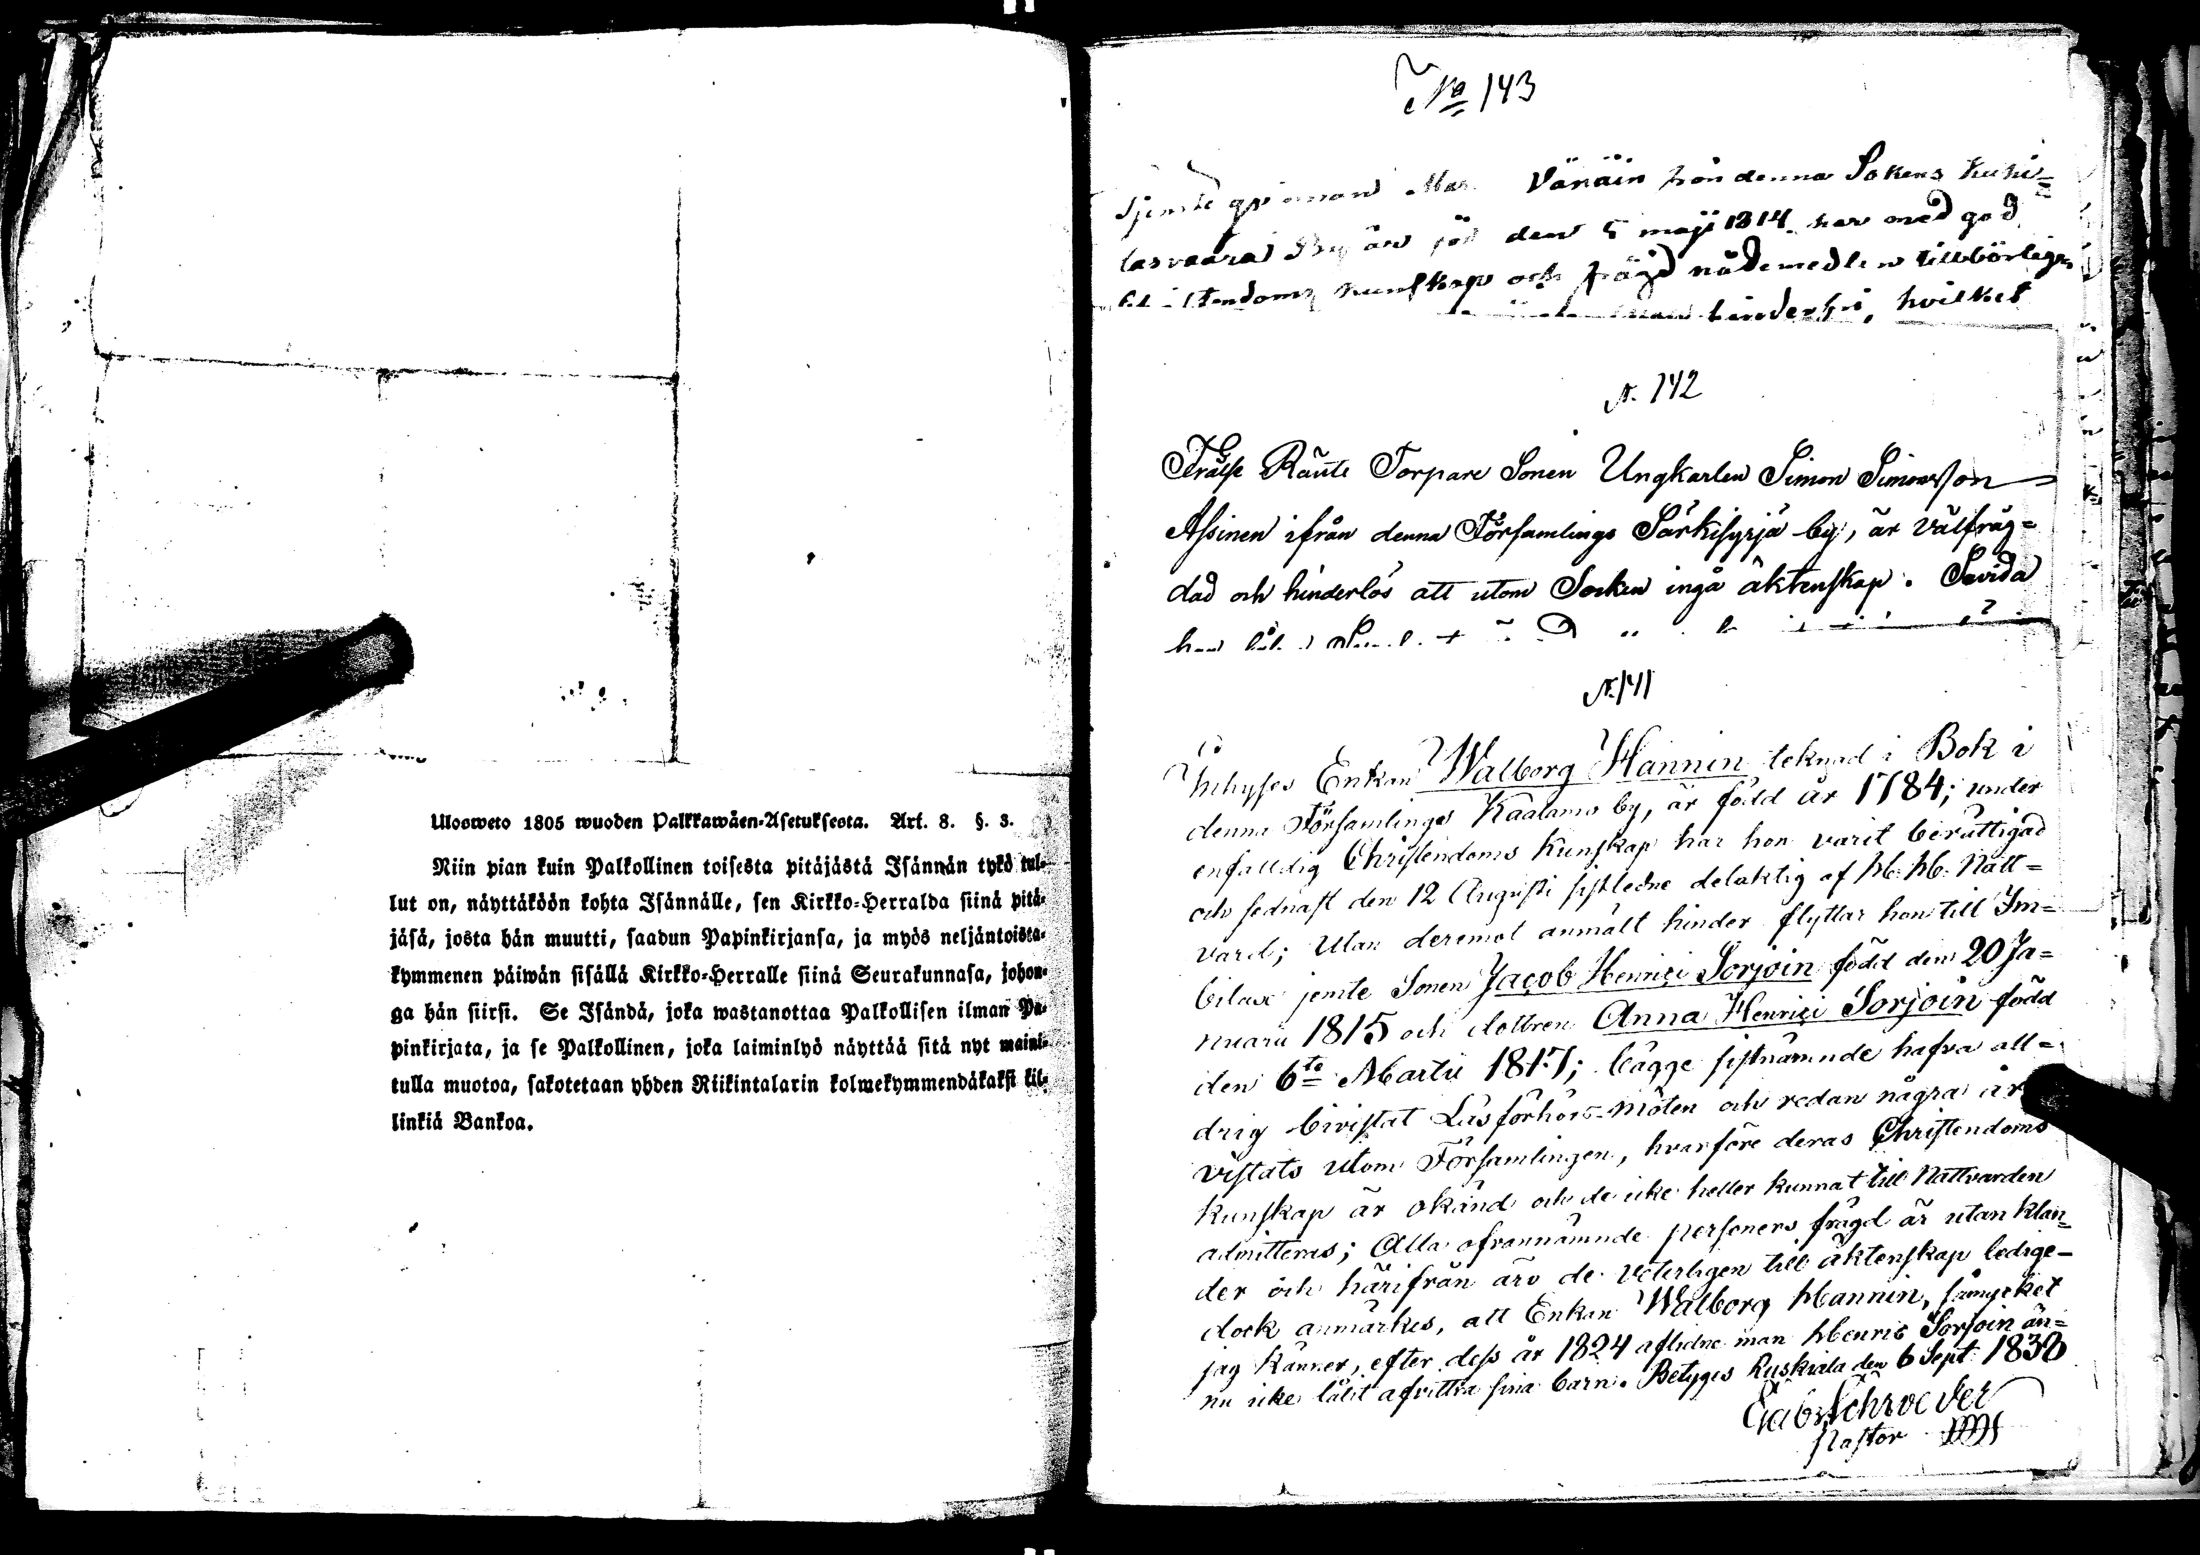 Ulosweto 1805 wuoden Palkkawäen-Asetuksesta. Art. 8. §. 3.
Niin pian kuin Palkollinen toisesta pitäjästä Isännän tykö tul-
lut on, näyttäköön kohta Isännälle, sen Kirkko-Herralda siinä pitä-
jäsä, josta hän muutti, saadun Papinkirjansa, ja myös neljäntoista-
kymmenen päiwän sisällä Kirkko-Herralle siinä Seurakunnasa, johon-
ga hän siirsi. Se Isändä, joka wastanottaa Palkollisen ilman Pa-
pinkirjata, ja se Palkollinen, joka laiminlyö näyttää sitä nyt maini-
tulla muotoa, sakotetaan yhden Riikintalarin kolmekymmendäkaksi kil-
linkiä Bankoa.
No 143
Väräin från denna Sokens
den 5 maji 1814 har med god
kunskap och frägd nådemedlen tillbörligen
hinderfri, hvilket
N. 142
Frälse Ränte Torpare Sonen Ungkarlen Simon Simonsson
Assinen ifrån denna Församlings Särkisyrjä by, är välfräg=
dad och hinderlös att utom Socken ingå äktenskap. Sevida
N. 141
Inhyses Enkan Walborg Hannin teknad i Bok i
denna Församlings Kaalamo by, är född år 1784; under
enfalldig Christendoms Kunskap har hon varit beruttigad
och sednast den 12 Augusti sistledne delaktig af H. H. Natt=
vard; Utan deremot anmält hinder flyttar hon till Im=
bilax jemte Sonen Jacob Henrici Sorjoin född den 20 Ja=
nuarii 1815 och dottren Anna Henrici Sorjoin född
den 6te Martii 1817; bägge sistnämnde hafva all=
drig bivistat Läsförhörs-möten och redan några år
vistats utom Församlingen, hvarföre deras Christendoms
Kunskap är okänd och de icke heller kunnat till Nattvarden
admitteras; Alla ofvannämnde personers frägd är utan klan=
der och härifrån äro de veterligen till äktenskap ledige-
dock anmärkes, att Enkan Walborg Hannin, såmycket
jag känner, efter dess år 1824 aflidne man Henric Sorjoin än=
nu icke låtit afvittra sina barn. Betyges Ruskiala den 6 Sept. 1838
Gabr Schroeder
Pastor